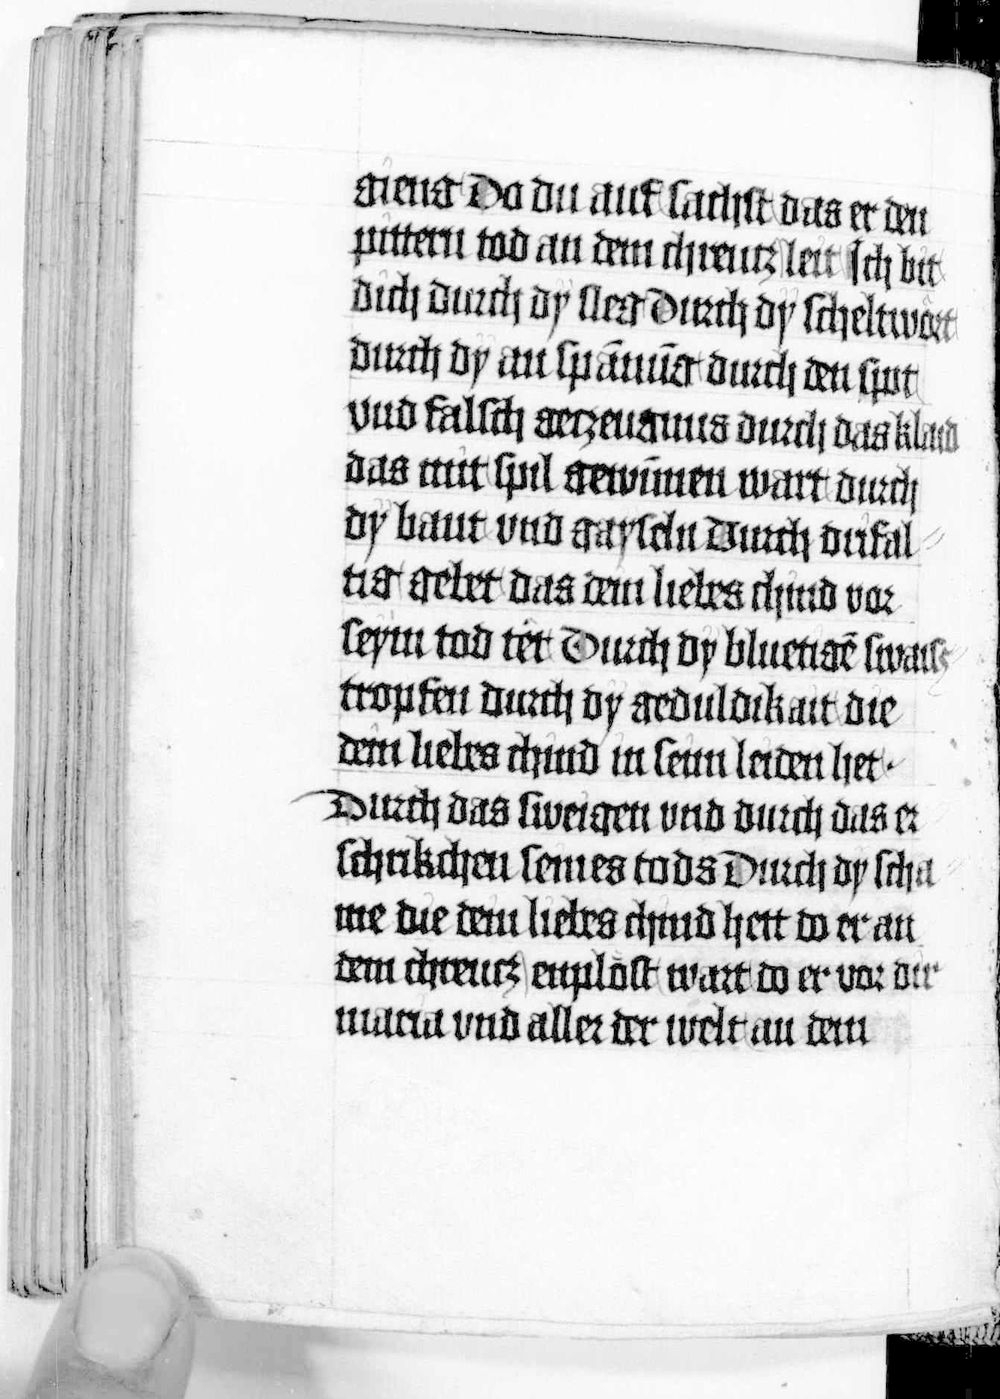 gieng Do du auf sachst das er den
pittern tod an dem chreutz leit Ich bit
dich durch dÿ sleg Durch dÿ scheltwort
durch dÿ an spānūg durch den spot
vnd falsch getzeugnus durch das klaid
das mit spil gewūnen wart durch
dÿ bant vnd gayseln Durch drifal
tig gebet das dein liebes chind vor
seym tod tet Durch dÿ bluetigē swais
tropfen durch dÿ geduldikait die
dein liebes chind in seim leiden het
Durch das sweigen vnd durch das er
schrikchen seines tods Durch dÿ scha
me die dein liebes chind hett do er an
dem chreutz enplöst wart do er vor dir
maria vnd aller der welt an dem